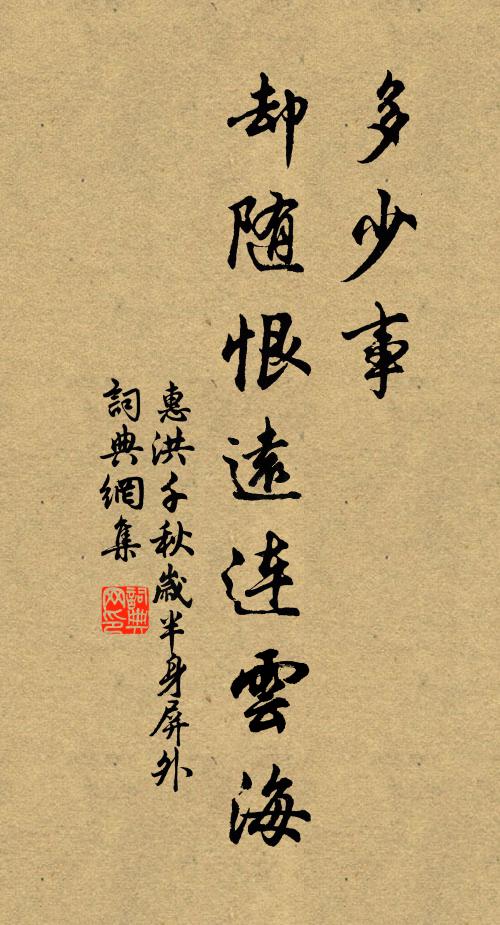 多少事
却随恨遠连雲海
惠洪千秋歲半身屏外
詞典網集
詞典
网印